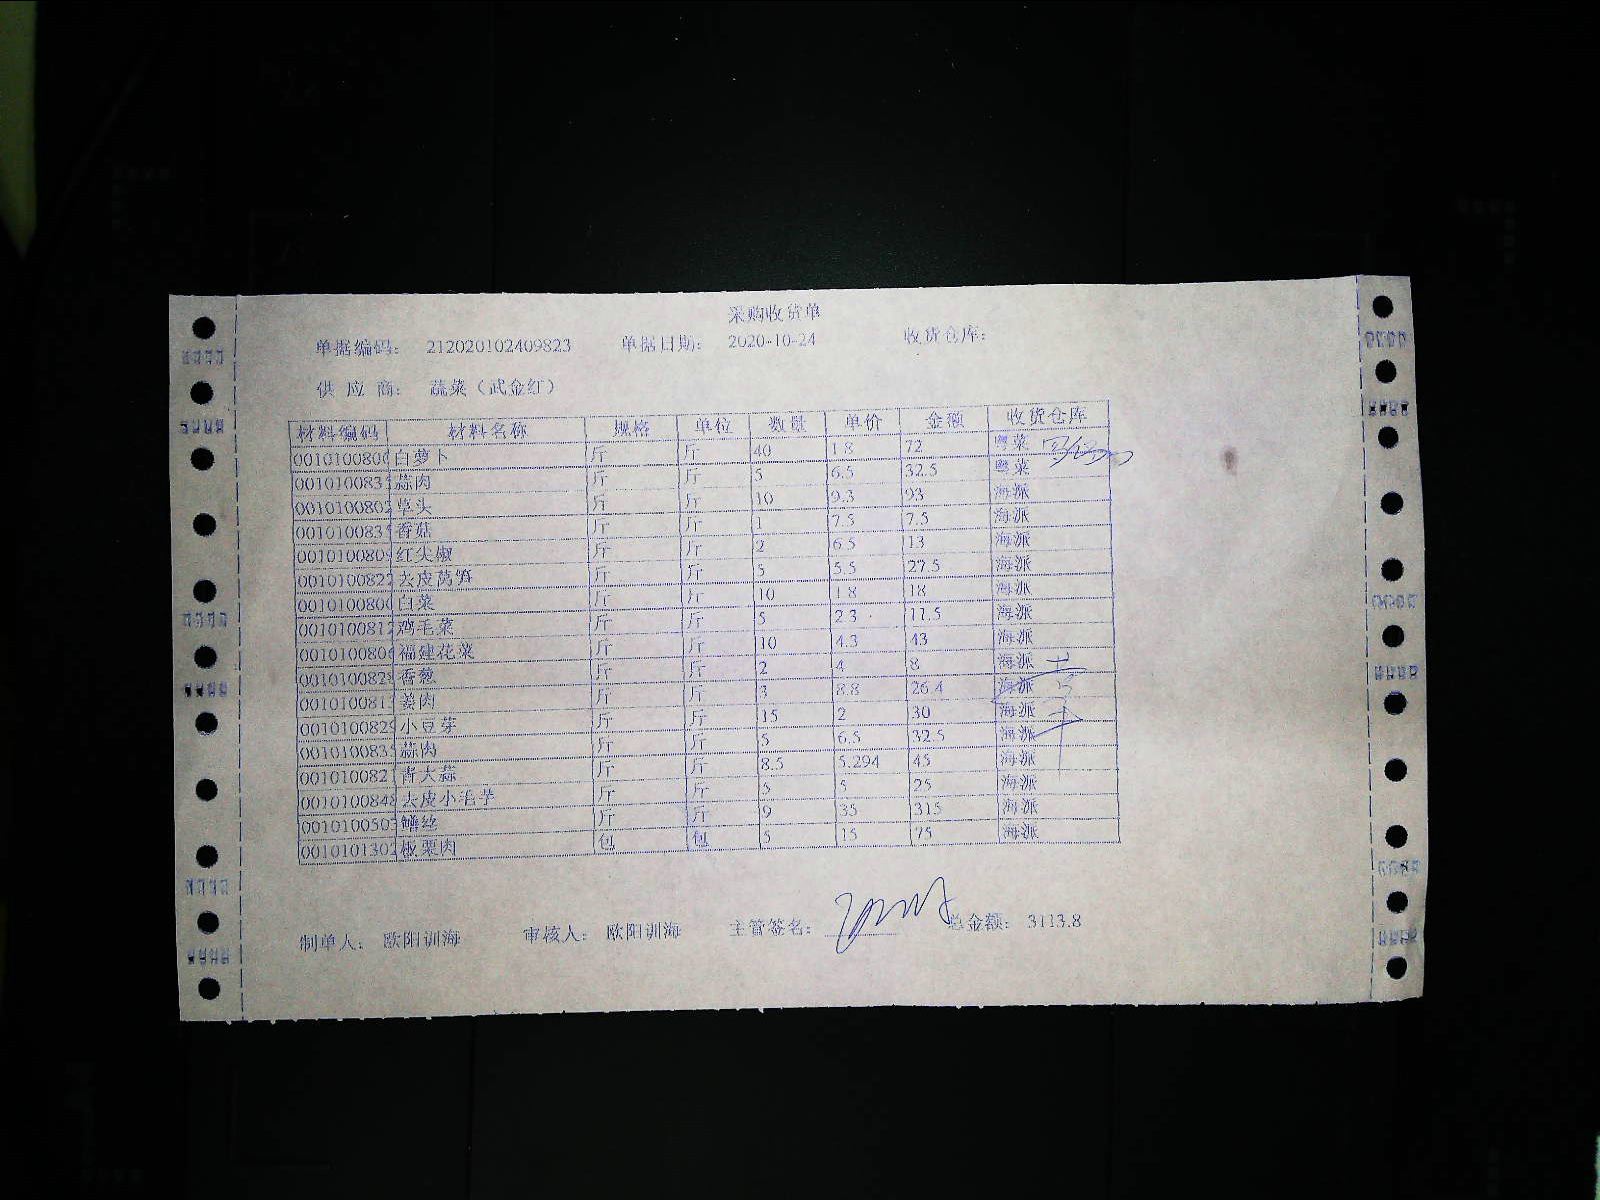 采购收货单
单据编码： 212020102409823 单据日期： 2020-10-24 收货仓库：
供 应 商： 蔬菜（武金红）
材料编码 材料名称 规格 单位 数量 单价 金额 收货仓库
0010100800 白萝卜 斤 斤 40 1.8 72 粤菜
001010083 蒜肉 斤 斤 5 6.5 32.5 粤菜
001010080 草头 斤 斤 10 9.3 93 海派
001010083 香菇 斤 斤 1 7.5 7.5 海派
001010080 红尖椒 斤 斤 2 6.5 13 海派
001010082 去皮莴笋 斤 斤 5 5.5 27.5 海派
001010080 白菜 斤 斤 10 1.8 18 海派
001010081 鸡毛菜 斤 斤 5 2.3 11.5 海派
001010080 福建花菜 斤 斤 10 4.3 43 海派
001010082 香葱 斤 斤 2 4 8 海派
001010081 姜肉 斤 斤 3 8.8 26.4 海派
001010082 小豆芽 斤 斤 15 2 30 海派
001010083 蒜肉 斤 斤 5 6.5 32.5 海派
001010082 青大蒜 斤 斤 8.5 5.294 45 海派
001010084 去皮小毛芋 斤 斤 5 5 25 海派
001010050 鳝丝 斤 斤 9 35 315 海派
001010130 板栗肉 包 包 5 15 75 海派
制单人： 欧阳训海 审核人： 欧阳训海 主管签名： 总金额： 3113.8